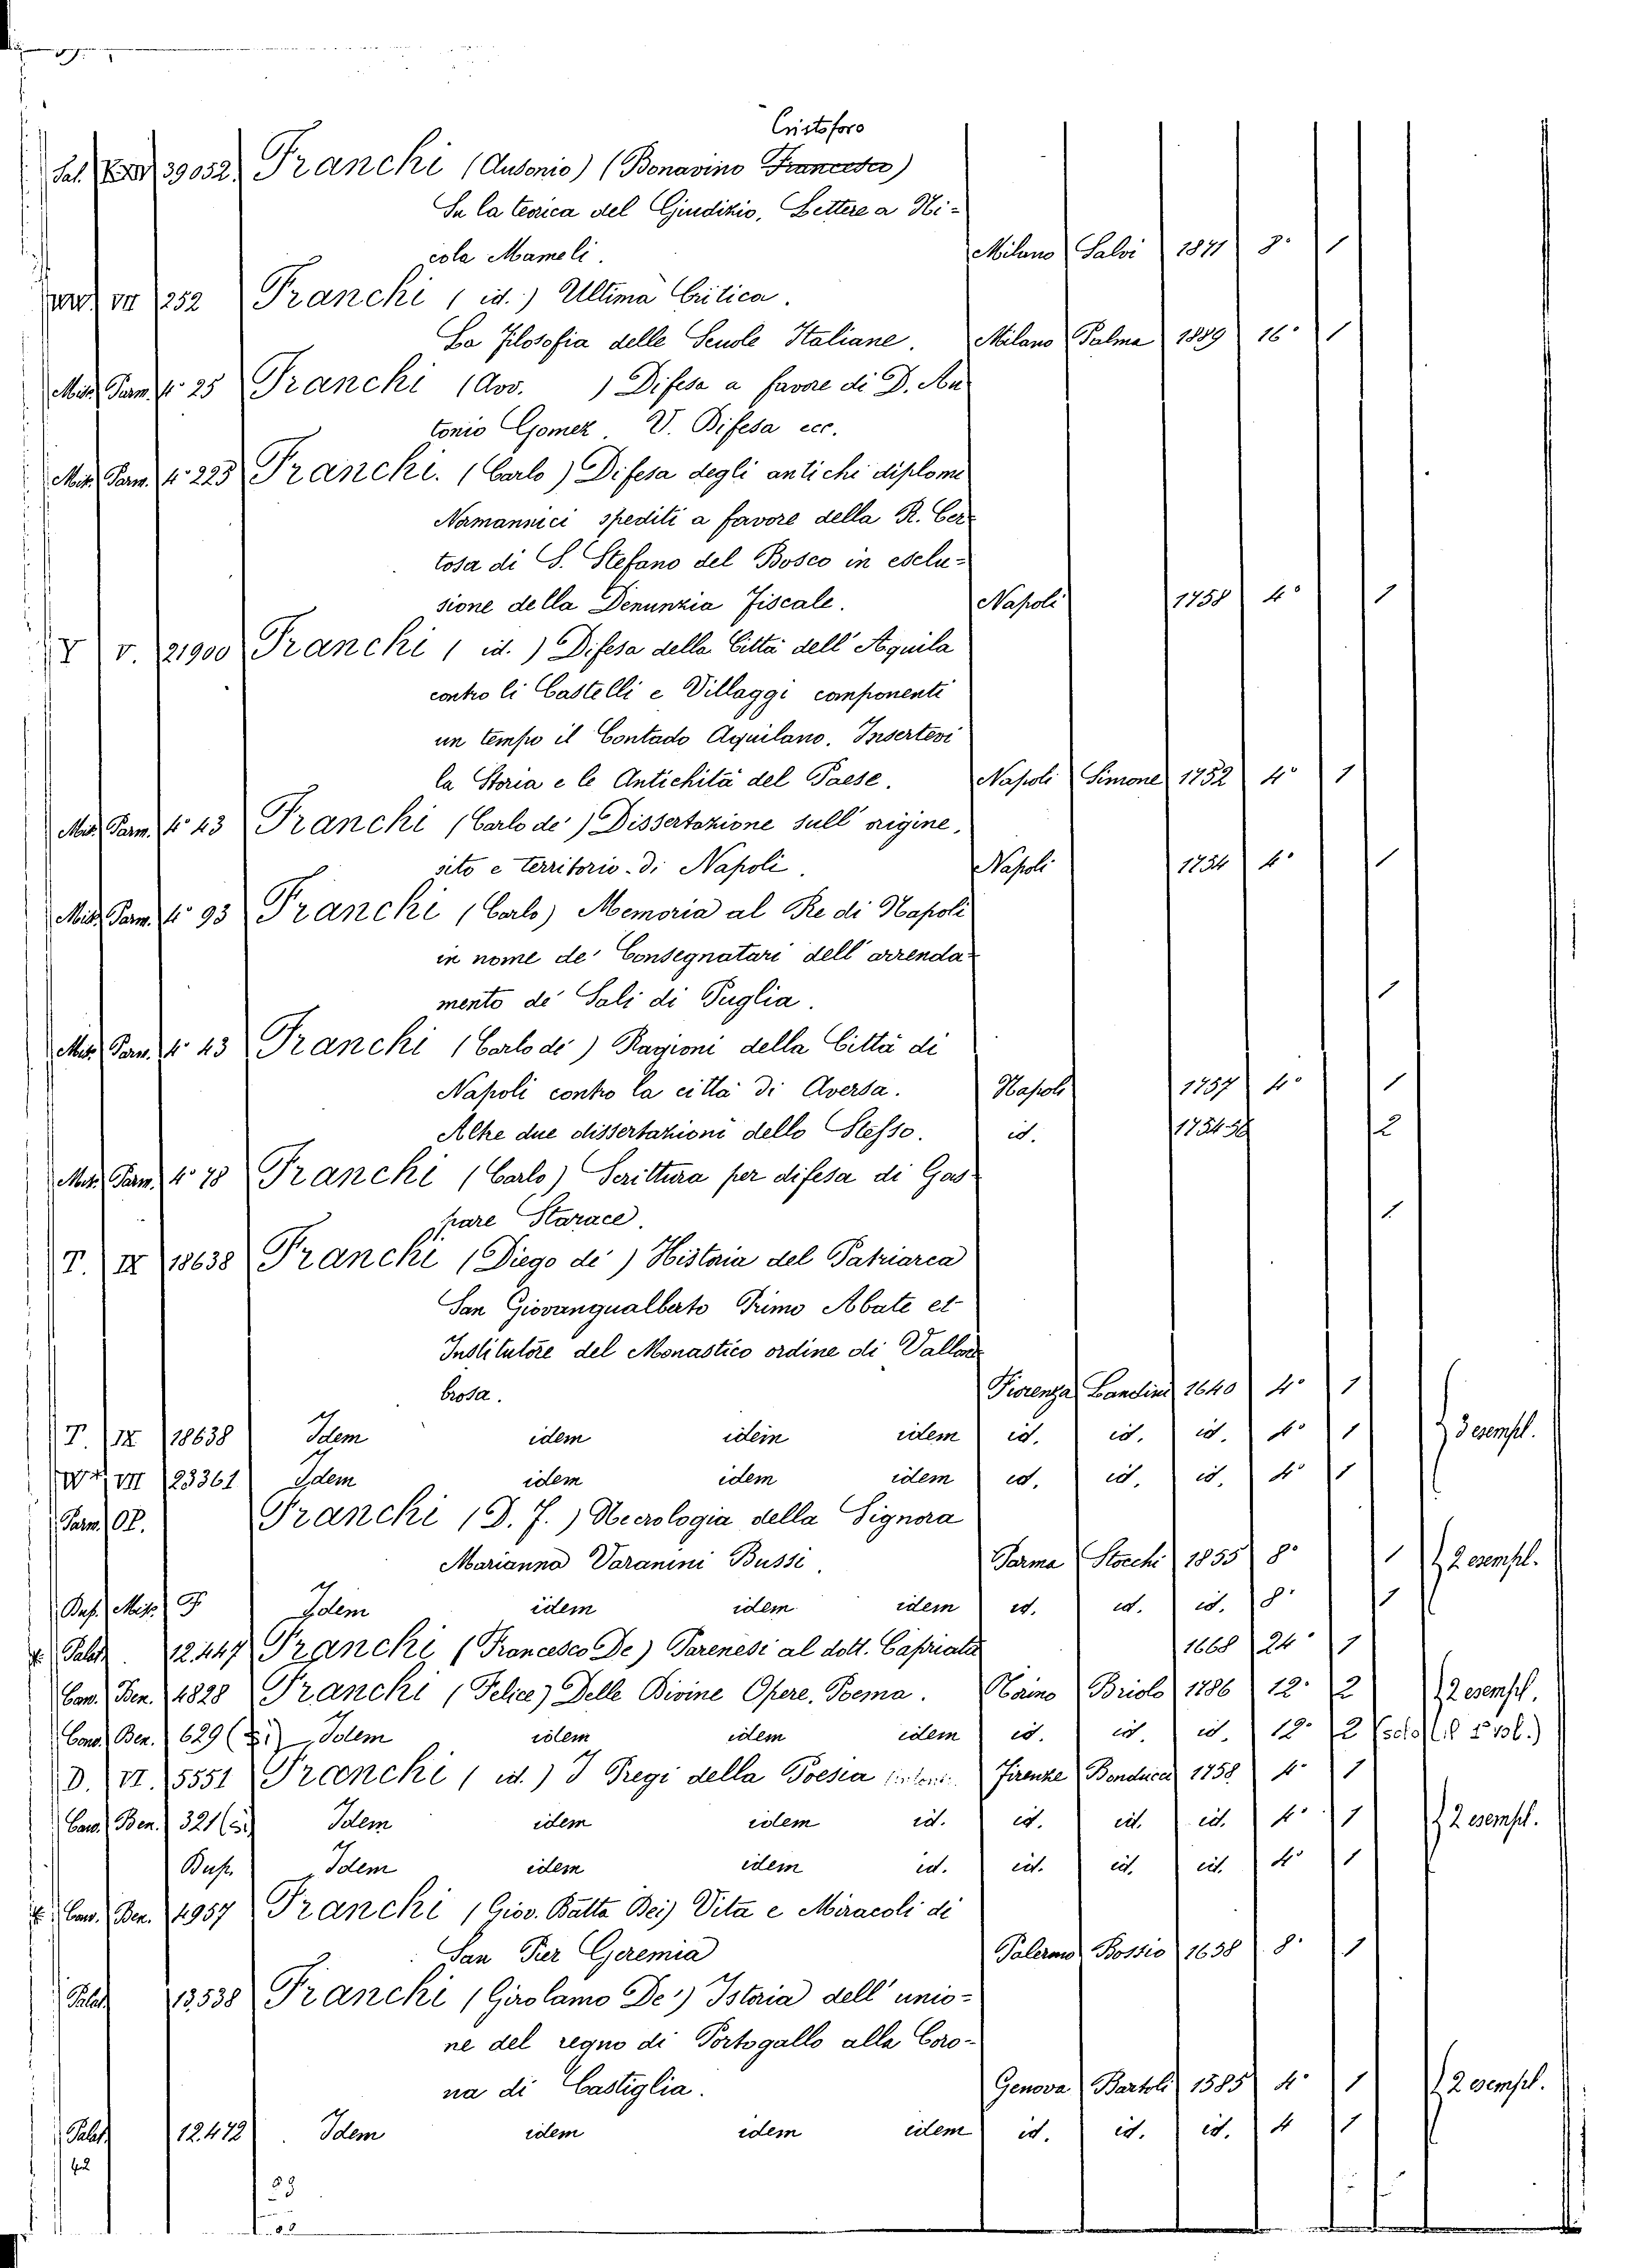 Cristoforo
Sal. 39052 Franchi (Ausonio) (Bonavino Francesco)
Su la teorica del Giudizio, Lettere a Ni-
cola Mameli. Milano Salvi 1871 8° 1
VII 252 Franchi (id.) Ultima Critica.
La Filosofia delle Scuole Italiane. Milano Palma 1889 16° 1
Misc. Parm. 4° 25 Franchi (Avv. ) Difesa a favore di D. An
tonio Gomez. V. Difesa ecc.
Misc. Parm. 4° 225 Franchi. (Carlo) Difesa degli antichi diplomi
Normannici spediti a favore della R. Cer-
tosa di S. Stefano del Bosco in esclu-
sione della Denunzia Fiscale. Napoli 1758 4° 1
V V. 21900 Franchi (id.) Difesa della Città dell'Aquila
contro li Castelli e Villaggi componenti
un tempo il Contado Aquilano. Insertevi
la Storia e le Antichità del Paese. Napoli Simone 1752 4° 1
Misc. Parm. 4° 43 Franchi (Carlo de') Dissertazione sull'origine,
sito e territorio di Napoli. Napoli 1754 4° 1
Misc. Parm. 4° 93 Franchi (Carlo) Memoria al Re di Napoli
in nome de' Consegnatari dell'arrenda-
mento de' Sali di Puglia. 1
Misc. Parm. 4° 43 Franchi (Carlo de') Ragioni della Città di
Napoli contro la città di Aversa. Napoli 1757 4° 1
Altre due dissertazioni dello Stesso. id. 1754-56 2
Misc. Parm. 4° 78 Franchi (Carlo) Scrittura per difesa di Gas-
pare Starace. 1
T. IX 18638 Franchi (Diego de') Historia del Patriarca
San Giovangualberto Primo Abate et
Institutore del Monastico ordine di Vallom-
brosa. Fiorenza Landini 1640 4° 1
T. IX 18638 Idem idem idem idem id. id. id. 4° 1 3 esempl.
VII 23361 Idem idem idem idem id. id. id. 4° 1
Parm. OP. Franchi (D. F.) Necrologia della Signora
Marianna Varanini Bussi. Parma Stocchi 1855 8° 1 2 esempl.
Bup. Misc. F Idem idem idem idem id. id. id. 8° 1
Palat. 12.447 Franchi (Francesco De) Parenesi al dott. Capriata 1668 24° 1
Cam. Ben. 4828 Franchi (Felice) Delle Divine Opere. Poema. Torino Briolo 1786 12° 2 2 esempl.
Cam. Ben. 629 Idem idem idem idem id. id. id. 12° 2 (solo il 1° vol.)
D. VI. 5551 Franchi (id.) I Pregi della Poesia Firenze Bonducci 1758 4° 1
Cam. Ben. 321 Idem idem idem id. id. id. id. 4° 1 2 esempl.
Bup. Idem idem idem id. id. id. id. 4° 1
Cam. Ben. 4957 Franchi (Giov. Batta Dei) Vita e Miracoli di
San Pier Geremia Palermo Bossio 1658 8° 1
Palat. 13,538 Franchi (Girolamo De') Istoria dell'unio-
ne del regno di Portogallo alla Coro-
na di Castiglia. Genova Bartoli 1585 4° 1 2 esempl.
Palat. 12.472 Idem idem idem idem id. id. id. 4 1
42